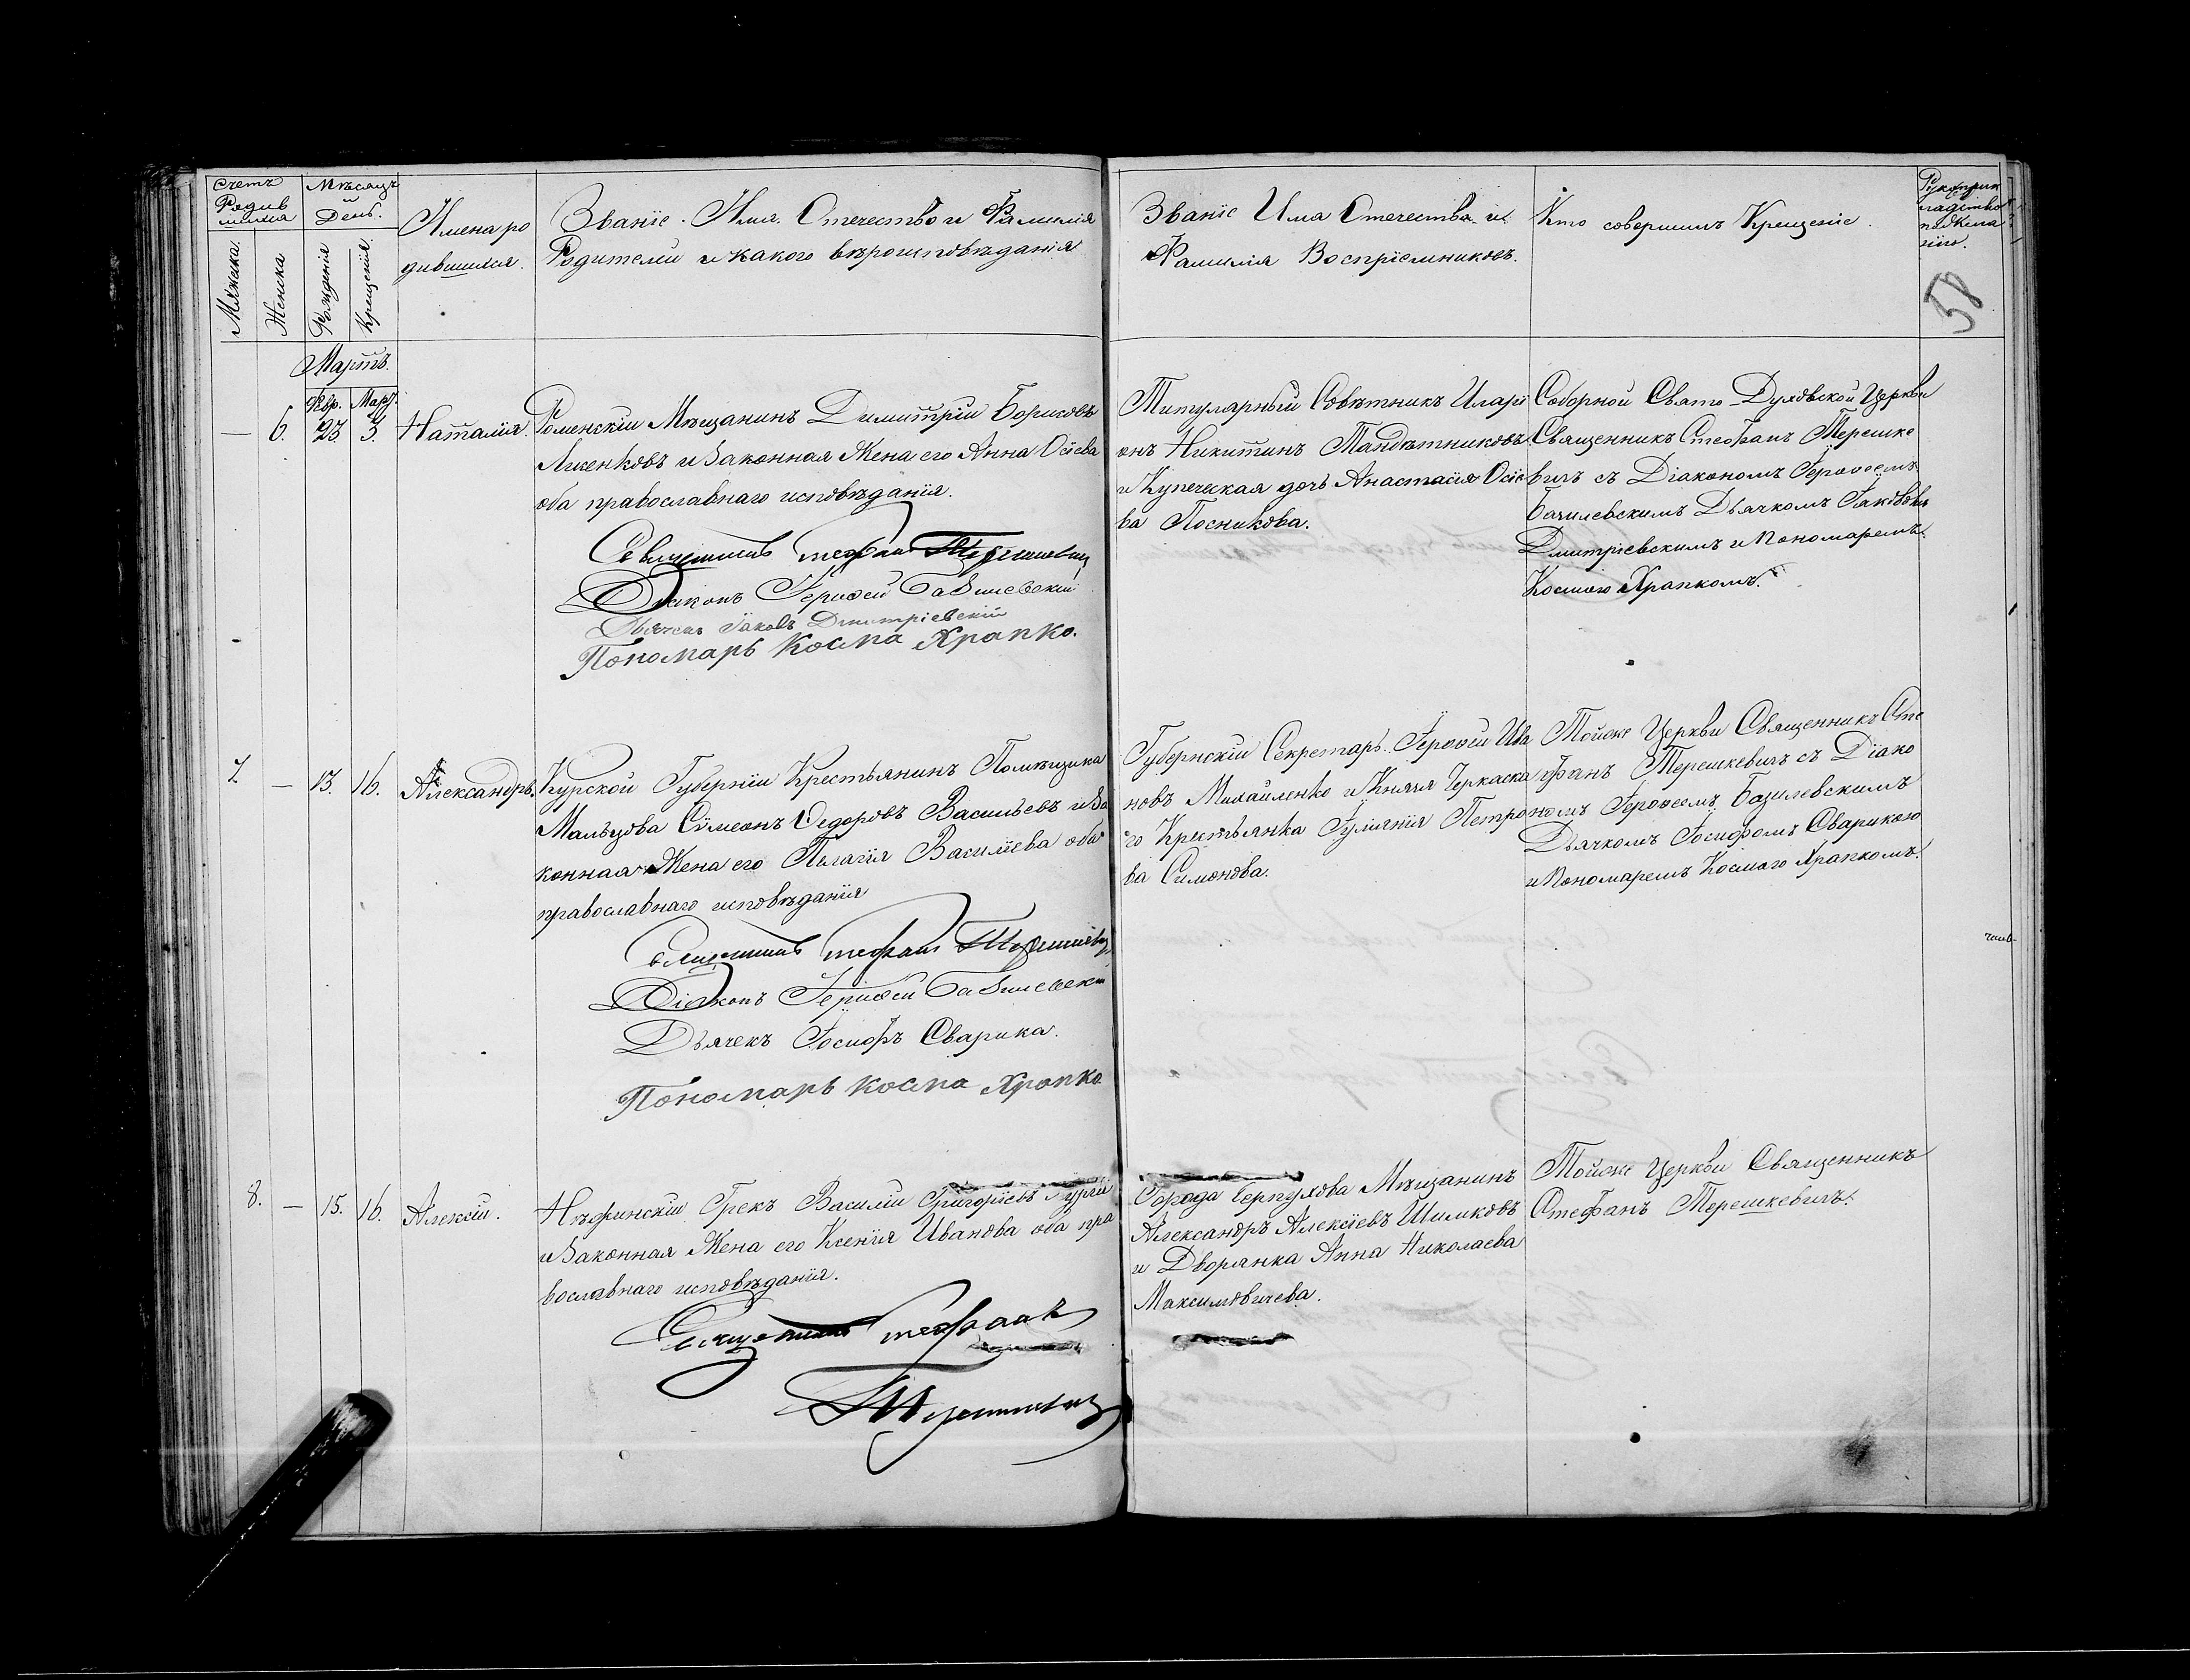 Счетъ
Родив
шихся
Мѣсяцъ
и
День.
Имена ро
дившихся.
Званіе. Имя. Отечество и Фамилія
Родителей и какого вѣроисповѣданія
Званіе Имя Отечество и
Фамилія Воспріемниковъ.
Кто совершилъ Крещеніе.
Мужска.
Женска
Рожденія
Крещенія.
58
Мартъ.
Февр. Март.
— 6. 23 3. Наталія.
Роменскій Мѣщанинъ Димитрій Борисовъ
Лиженковъ и Законная Жена его Анна Осіева
оба православнаго исповѣданія.
Священникъ Стефанъ Терешкевичъ
Діаконъ Іерофей Базилевскій
Дьячекъ Іаковъ Дмитріевскій
Пономарь Косма Храпко.
Титулярный Совѣтникъ Иларі
онъ Никитинъ
и Купеческая дочь Анастасія Осіе
ва Посникова.
Соборной Свято Духовской Церкви
Священникъ Стефанъ Терешке
вичъ съ Діакономъ Іерофеемъ
Базилевскимъ Дьячкомъ Іаковомъ
Дмитріевскимъ и Пономаремъ
Космою Храпкомъ.
7. — 13. 16. Александръ.
Курской Губерніи Крестьянинъ Помѣщика
Мальцова Сѵмеонъ Ѳедоровъ Васильевъ и За
конная Жена его Пелагія Василіева оба
православнаго исповѣданія
Священникъ Стефанъ Терешкевичъ
Діаконъ Іерофей Базилевскій
Дьячекъ Іосифъ Сварика.
Пономарь Косма Храпко
Губернскій Секретарь Іерофей Ива
новъ Михайленко и Князя Черкаска
го Крестьянка Іуліянія Петро
ва Симонова.
Тойже Церкви Священникъ Сте
фанъ Терешкевичъ съ Діако
номъ Іерофеемъ Базилевскимъ
Дьячкомъ Іосифомъ Сварикою
и Пономаремъ Космою Храпкомъ.
8. — 15. 16. Алексій.
Нѣжинскій Грекъ Василій Григоріевъ
и Законная Жена его Ксенія Иванова оба пра
вославнаго исповѣданія.
Священникъ Стефанъ
Терешкевичъ
Города Серпухова Мѣщанинъ
Александръ Алексіевъ Шимковъ
и Дворянка Анна Николаева
Максимовичева.
Тойже Церкви Священникъ
Стефанъ Терешкевичъ.